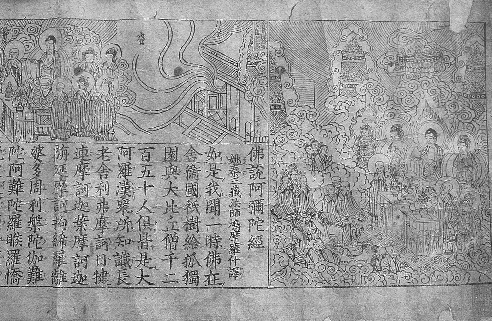 佛說阿彌陀經
姚秦三藏法師鳩摩羅什譯
如是我聞一時佛在
舍衛國祇樹給孤獨
園與大比丘僧千二
百五十人俱皆是大
阿羅漢眾所知識長
老舍利弗摩訶目揵
連摩訶迦葉摩訶迦
旃延摩訶拘絺羅離
婆多周利槃陀伽難
陀阿難陀羅睺羅憍